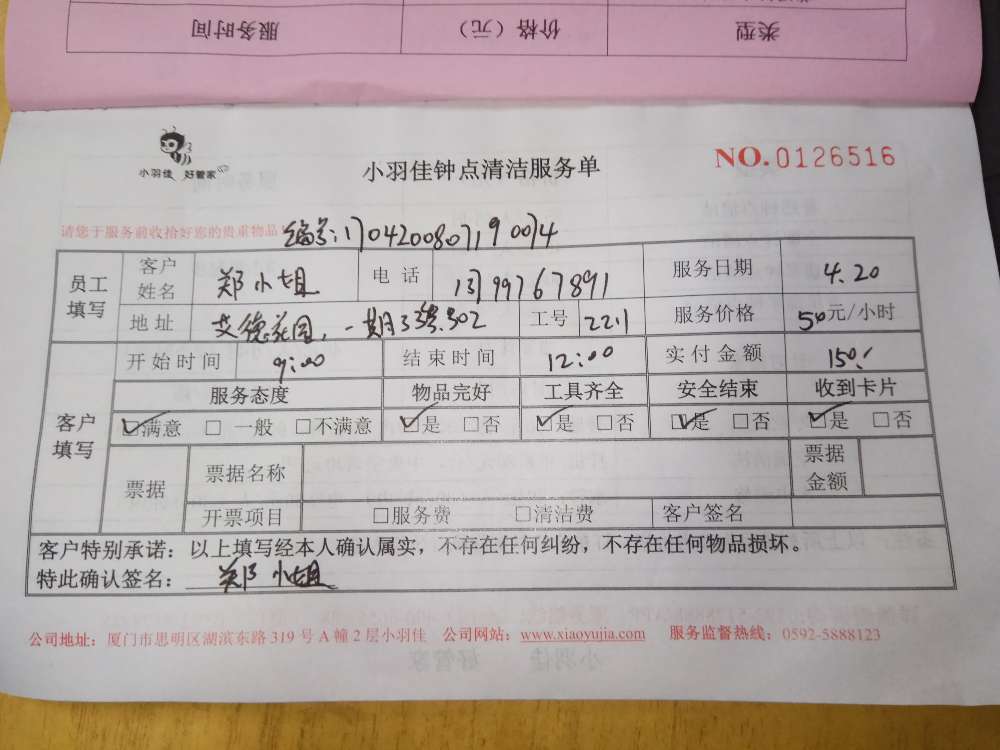 类型 价格（元） 服务时间
小羽佳 好管家
小羽佳钟点清洁服务单
NO.0126516
请您于服务前收拾好您的贵重物品
编号:1704200807190074
员工填写 客户姓名 郑小姐 电话 13799767891 服务日期 4.20
地址 艾德花园,一期 502 工号 2211 服务价格 50元/小时
客户填写 开始时间 9:00 结束时间 12:00 实付金额 150.
服务态度 物品完好 工具齐全 安全结束 收到卡片
☑满意 □一般 □不满意 ☑是 □否 ☑是 □否 ☑是 □否 ☑是 □否
票据 票据名称 票据金额
开票项目 □服务费 □清洁费 客户签名
客户特别承诺：以上填写经本人确认属实，不存在任何纠纷，不存在任何物品损坏。
特此确认签名：郑小姐
公司地址：厦门市思明区湖滨东路319号A幢2层小羽佳 公司网站：www.xiaoyujia.com 服务监督热线：0592-5888123